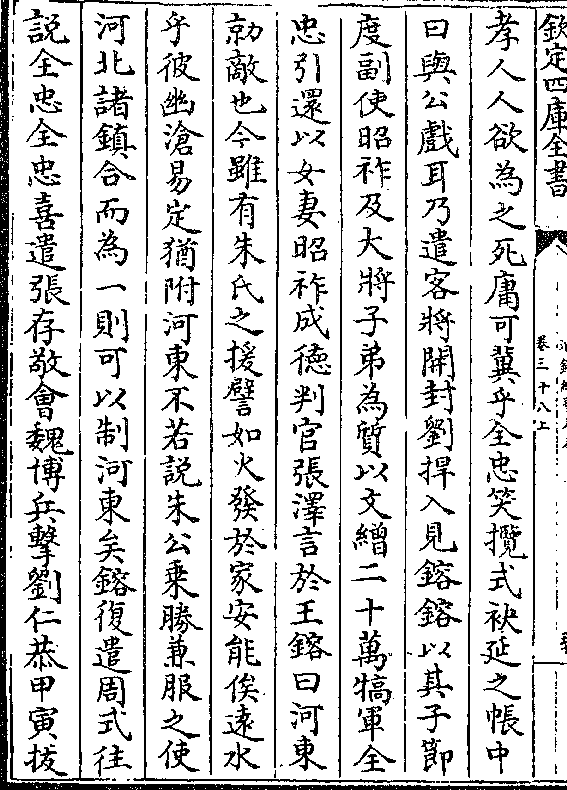 欽定四庫全書
卷三十八上
孝人人欲為之死庸可冀乎全忠笑攬式袂延之帳中
曰與公戲耳乃遣客將開封劉捍入見鎔鎔以其子節
度副使昭祚及大將子弟為質以文繒二十萬犒軍全
忠引還以女妻昭祚成徳判官張澤言於王鎔曰河東
勍敵也今雖有朱氏之援譬如火發於家安能俟逺水
乎彼幽滄易定猶附河東不若説朱公乗勝兼服之使
河北諸鎮合而為一則可以制河東矣鎔復遣周式往
説全忠全忠喜遣張存敬會魏博兵擊劉仁恭甲寅拔